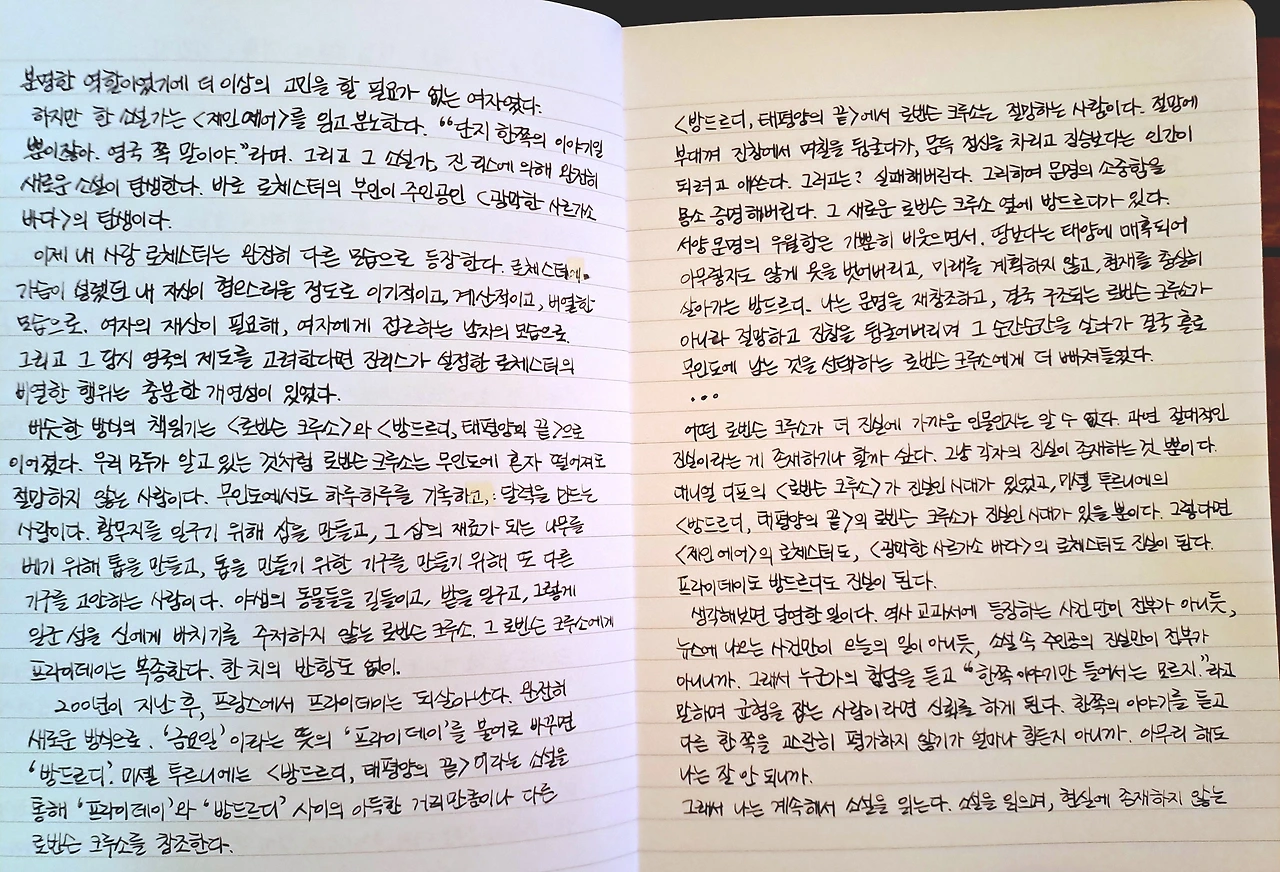 분명한 역할이었기에 더 이상의 고민을 할 필요가 없는 여자였다.
하지만 한 소설가는 <제인 에어>를 읽고 분노한다. “단지 한쪽의 이야기일
뿐이잖아. 영국 쪽 말이야.”라며. 그리고 그 소설가, 진 리스에 의해 완전히
새로운 소설이 탄생한다. 바로 로체스터의 부인이 주인공인 <광막한 사르가소
바다>의 탄생이다.
이제 내 사랑 로체스터는 완전히 다른 모습으로 등장한다. 로체스터에
가슴이 설렜던 내 자신이 혐오스러울 정도로 이기적이고, 계산적이고, 비열한
모습으로. 여자의 재산이 필요해, 여자에게 접근하는 남자의 모습으로.
그리고 그 당시 영국의 제도를 고려한다면 진리스가 설정한 로체스터의
비열한 행위는 충분한 개연성이 있었다.
비슷한 방식의 책읽기는 <로빈슨 크루소>와 <방드르디, 태평양의 끝>으로
이어졌다. 우리 모두가 알고 있는 것처럼 로빈슨 크루소는 무인도에 혼자 떨어져도
절망하지 않는 사람이다. 무인도에서도 하루하루를 기록하고, 달력을 만드는
사람이다. 황무지를 일구기 위해 삽을 만들고, 그 삽의 재료가 되는 나무를
베기 위해 톱을 만들고, 톱을 만들기 위한 기구를 만들기 위해 또 다른
기구를 고안하는 사람이다. 야생의 동물들을 길들이고, 밭을 일구고, 그렇게
일군 섬을 신에게 바치기를 주저하지 않는 로빈슨 크루소. 그 로빈슨 크루소에게
프라이데이는 복종한다. 한 치의 반항도 없이.
200년이 지난 후, 프랑스에서 프라이데이는 되살아난다. 완전히
새로운 방식으로. ‘금요일’이라는 뜻의 ‘프라이데이’를 불어로 바꾸면
‘방드르디’. 미셸 투르니에는 <방드르디, 태평양의 끝>이라는 소설을
통해 ‘프라이데이’와 ‘방드르디’ 사이의 아득한 거리만큼이나 다른
로빈슨 크루소를 창조한다.
<방드르디, 태평양의 끝>에서 로빈슨 크루소는 절망하는 사람이다. 절망에
부대껴 진창에서 며칠을 뒹굴다가, 문득 정신을 차리고 짐승보다는 인간이
되려고 애쓴다. 그리고는? 실패해버린다. 그리하여 문명의 소중함을
몸소 증명해버린다. 그 새로운 로빈슨 크루소 옆에 방드르디가 있다.
서양 문명의 우월함은 가뿐히 비웃으면서. 땅보다는 태양에 매혹되어
아무렇지도 않게 옷을 벗어버리고, 미래를 계획하지 않고, 현재를 충실히
살아가는 방드르디. 나는 문명을 재창조하고, 결국 구조되는 로빈슨 크루소가
아니라 절망하고 진창을 뒹굴어버리며 그 순간순간을 살다가 결국 홀로
무인도에 남는 것을 선택하는 로빈슨 크루소에게 더 빠져들었다.
...
어떤 로빈슨 크루소가 더 진실에 가까운 인물인지는 알 수 없다. 과연 절대적인
진실이라는 게 존재하기나 할까 싶다. 그냥 각자의 진실이 존재하는 것 뿐이다.
대니얼 디포의 <로빈슨 크루소>가 진실인 시대가 있었고, 미셸 투르니에의
<방드르디, 태평양의 끝>의 로빈슨 크루소가 진실인 시대가 있을 뿐이다. 그렇다면
<제인 에어>의 로체스터도, <광막한 사르가소 바다>의 로체스터도 진실이 된다.
프라이데이도 방드르디도 진실이 된다.
생각해보면 당연한 일이다. 역사 교과서에 등장하는 사건만이 전부가 아니듯,
뉴스에 나오는 사건만이 오늘의 일이 아니듯, 소설 속 주인공의 진실만이 전부가
아니니까. 그래서 누군가의 험담을 듣고 “한쪽 이야기만 들어서는 모르지.”라고
말하며 균형을 잡는 사람이라면 신뢰를 하게 된다. 한쪽의 이야기를 듣고
다른 한쪽을 교란히 평가하지 않기가 얼마나 힘든지 아니까. 아무리 해도
나는 잘 안 되니까.
그래서 나는 계속해서 소설을 읽는다. 소설을 읽으며, 현실에 존재하지 않는